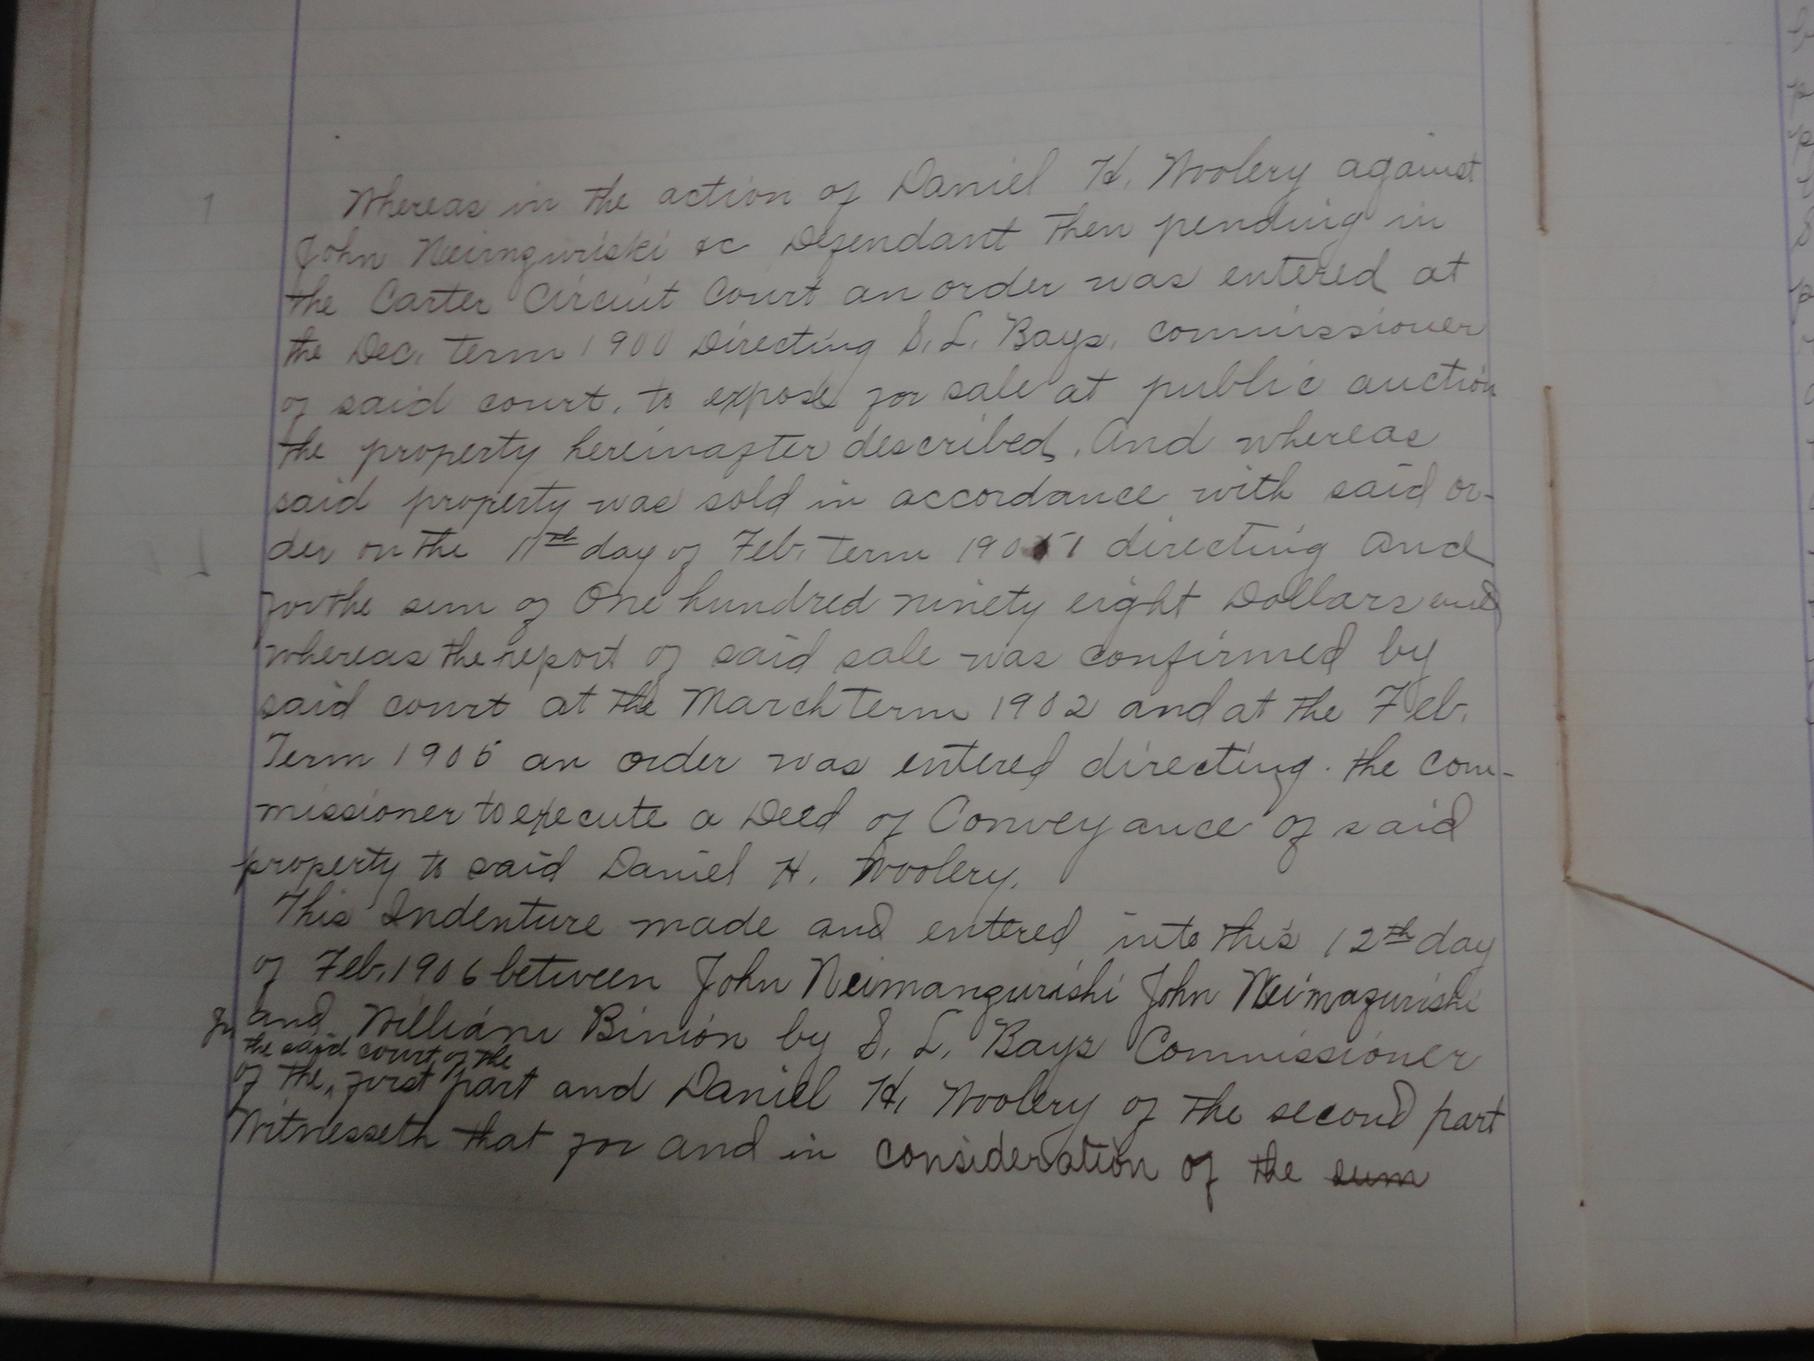 Whereas in the action of Daniel H. Woolery against
John Neimguriski &c Defendant then pending in
the Carter Circuit Court an order was entered at
the Dec. term 1900 Directing S. L. Bays, commissioner
of said court, to expose for sale at public auction
the property hereinafter described. And whereas
said property was sold in accordance with said or-
der on the 11th day of Feb. term 1901 directing and
for the sum of One hundred ninety eight Dollars and
whereas the report of said sale was confirmed by
said court at the March term 1902 and at the Feb.
Term 1905 an order was entered directing. the com-
missioner to execute a Deed of Conveyance of said
property to said Daniel H. Woolery.
This Indenture made and entered into this 12th day
of Feb. 1906 between John Neimanguriski John Neimaguriski
Jr and William Binion by S. L. Bays Commissioner
the said court of the
of the, first part and Daniel H. Woolery of the second part
Witnesseth that for and in consideration of the sum